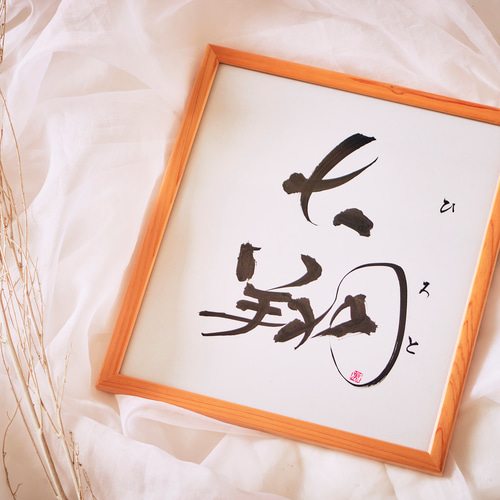 大翔
ひろと